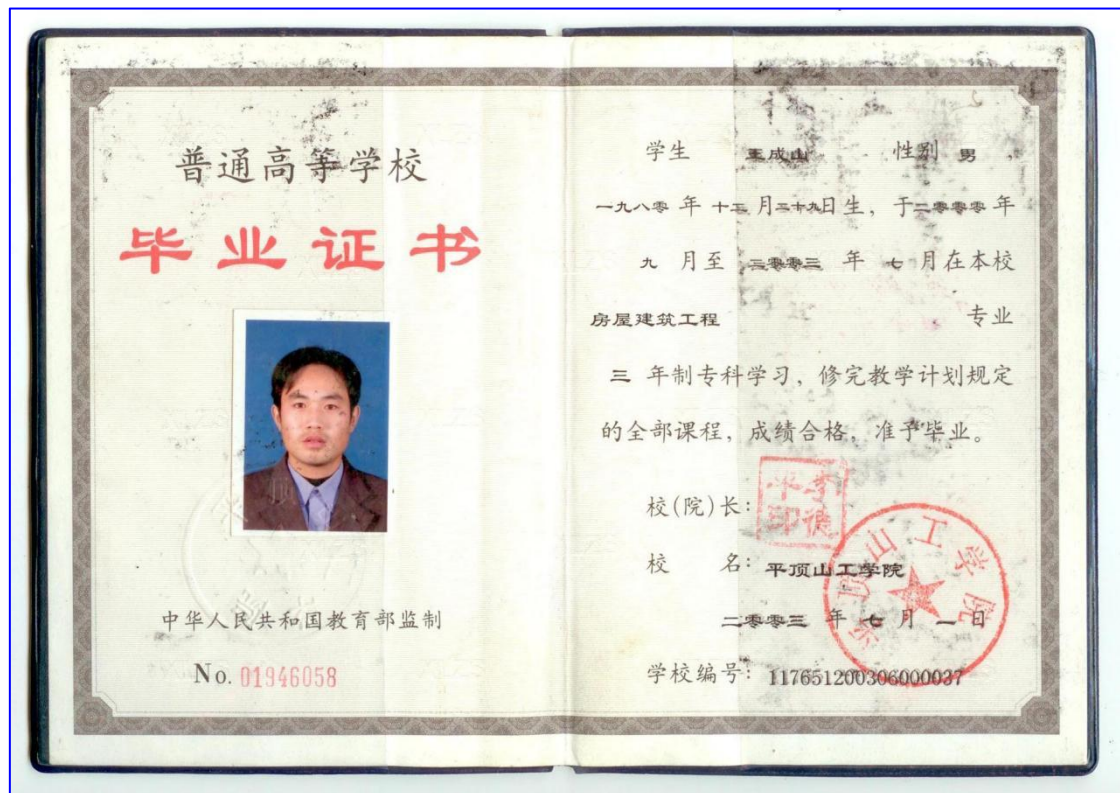 普通高等学校
毕业证书
中华人民共和国教育部监制
No. 01946058
学生 王成山 性别 男 ,
一九八零 年 十二 月二十九日生, 于二零零零年
九 月至 二零零三 年 七 月在本校
房屋建筑工程 专业
三 年制专科学习, 修完教学计划规定
的全部课程, 成绩合格, 准予毕业。
校(院)长:
李德平印
校 名: 平顶山工学院
平顶山工学院
二零零三 年 七 月 一 日
学校编号: 117651200306000037